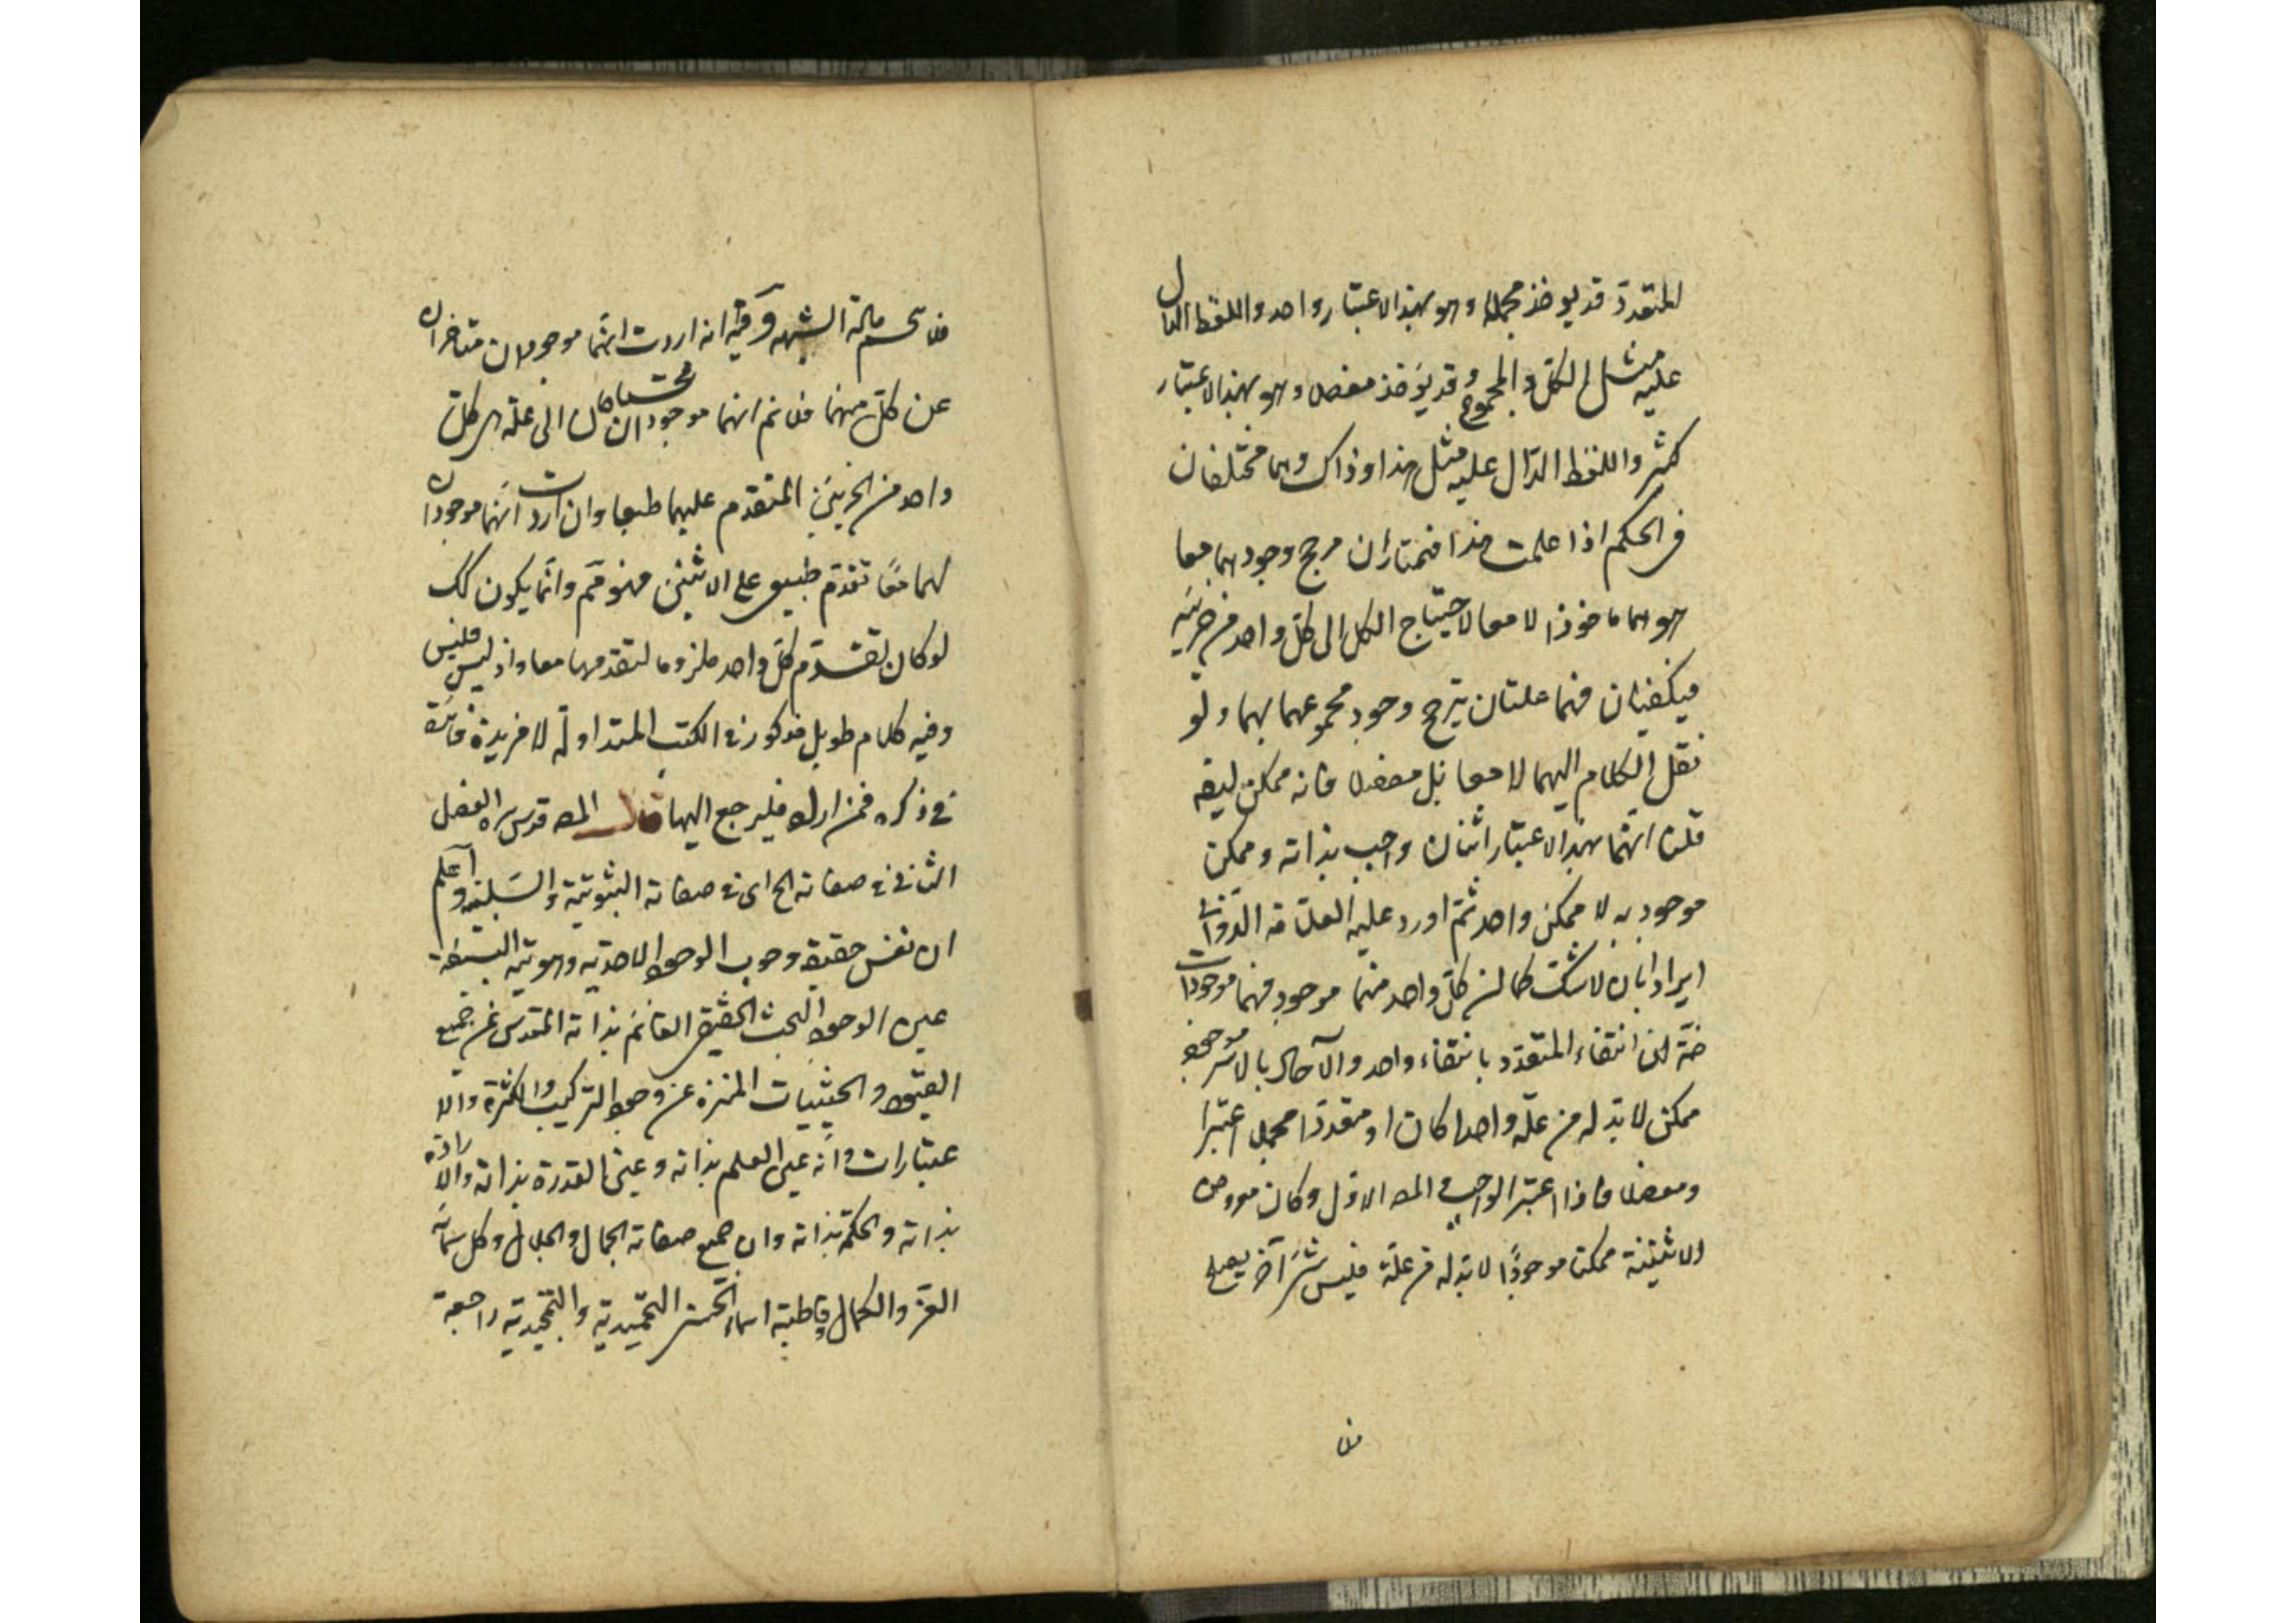 المتعدد قد يوخذ مجملا وهو بهذا الاعتبار واحد واللفظ الدال
عليه مثل الكل والمجموع وقد يؤخذ مفصلا وهو بهذا الاعتبار
كثير واللفظ الدال عليه مثل هذا وذاك وهما مختلفان
فى الحكم اذا علمت هذا فنختار ان مرجح وجودهما معا
هو هما ماخوذا لا معا لاحتياج الكل الى كل واحد من جزئيه
فيكفيان فهما علتان يترجح وجود مجموعهما بهما ولو
نقل الكلام اليهما لا معا بل مفصلا فانه ممكن
قلنا انهما بهذا الاعتبار اثنان واجب بذاته وممكن
موجود به لا ممكن واحد ثم اورد عليه العلامة الدوانى
ايرادا بان لا شك كل واحد منهما موجود فهما موجودان
ضرة ان انتفاء المتعدد بانتفاء واحد والآحاد بالاسر موجود
ممكن لا بد له من علة واحدا كان او متعددا مجملا اعتبر
ومفصلا فاذا اعتبر الواجب المعـ الاول وكان معروض
الاثنينية ممكنا موجودًا لا بد له من علة فليس شئ آخر يصلح
فلا
فلا يحسم مادة الشبهة وفيه انه اردت انهما موجودان متاخران
عن كل منهما فلا نم انهما موجودان محتاجان الى علة هى كل
واحد من الجزئين المتقدم عليهما طبعا وان اردت انهما موجودان
لهما معًا تقدم طبيعى على الاثنين فهو مم وانما يكون كك
لو كان تقدم كل واحد ملزوما لتقدمهما معا واذ ليس فليس
وفيه كلام طويل مذكور فى الكتب المتداولة لا مزيد فائدة
فى ذكره فمن اراد فليرجع اليها قال المصـ قدس سره الفصل
الثانى فى صفاته الخ اى فى صفاته الثبوتية والسلبية واعلم
ان نفس حقيقة وجوب الوجود الاحدية وهويته البسيطة
عين الوجود البحت الحقيقى القائم بذاته المقدس عن جميع
القيود والحيثيات المنزه عن وجوه التركيب والكثرة والا
عتبارات وانه عين العلم بذاته وعين القدرة بذاته والارادة
بذاته والحكمة بذاته وان جميع صفاته الجمال والجلال وكل سمات
العز والكمال وقاطبة اسماء الحسنى التحميدية والتمجيدية راجعة